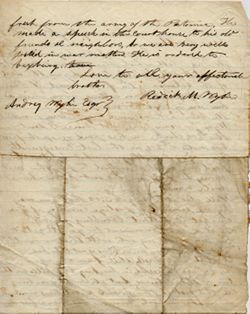 fresh from the army of the Potomac. He
made a speech in the Court house to his old
friends & neighbors, he is very well
posted in war matters. He is ordered to
Love to all your affectional
brother
Redick M
Andrew Esqr